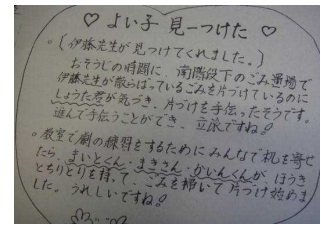 ♡ よい子 見ーつけた ♡
。(伊藤先生が見つけてくれました。)
おそうじの時間に、南階段下のごみ置場で
伊藤先生が散らばっているごみを片づけているのに
しょうた君が気づき、片づけを手伝ったそうです。
進んで手伝うことができ、立派ですね!
。教室で劇の練習をするためにみんなで机を寄せ
たら、まいとくん・まきさん・かいんくんが、ほうき
とちりとりを持って、ごみを掃いて片づけ始めま
した。うれしいですね!